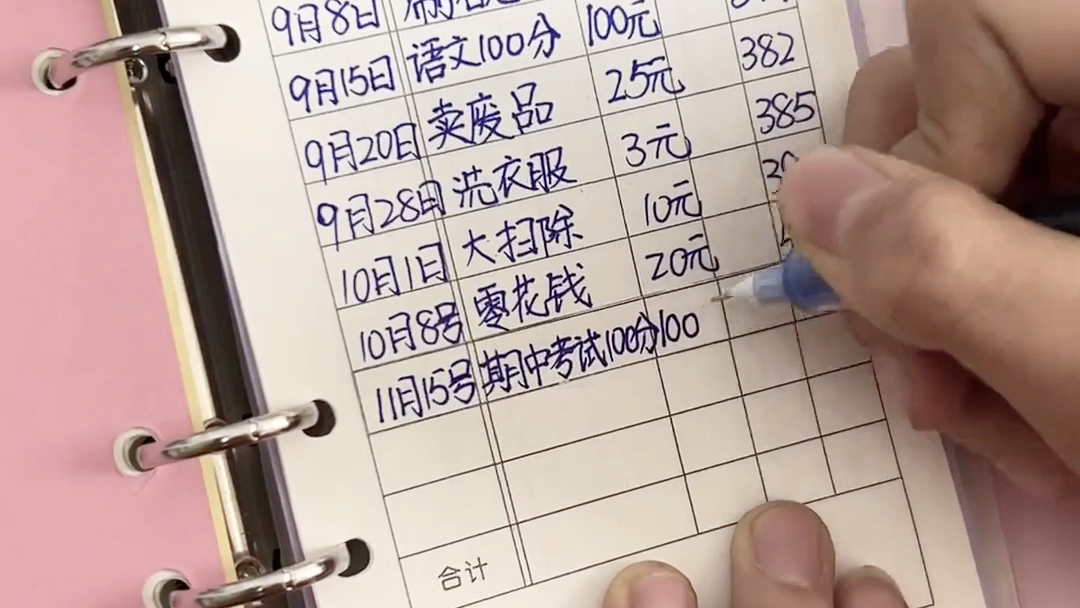 9月8日
9月15日 语文100分 100元
9月20日 卖废品 25元 382
9月28日 洗衣服 3元 385
10月1日 大扫除 10元
10月8号 零花钱 20元
11月15号 期中考试100分 100
合计